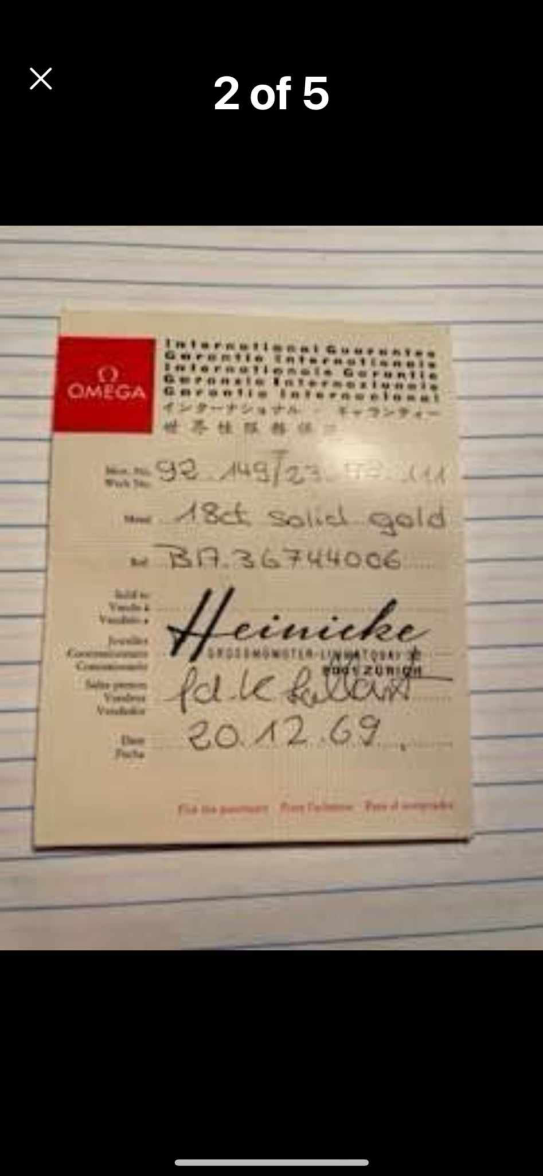 2 of 5
OMEGA
International Guarantee
Garantie Internationale
Internationale Garantie
Garanzia Internazionale
Garantía Internacional
インターナショナル ギャランティー
世界性服務保
Mov. No.
Werk No.
92.149/23
111
Metal 18ct solid gold
Ref. BA.36744006
Sold to
Vendu à
Vendido a
Heinicke
GROSSMÜNSTER-LIMMATQUAI
8001 ZÜRICH
Sales person
Vendeur
Vendedor
Date
Fecha
20.12.69
For the purchaser Pour l'acheteur Para el comprador